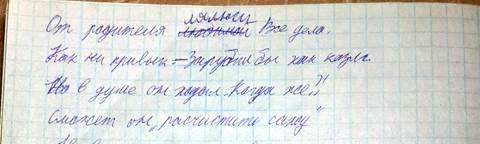 От родителя лялюси Все дела.
Как ни привык – Зарубил бы как козла
Но в думе он ходил. Когда же?!
Сможет он "расчистить сажу"